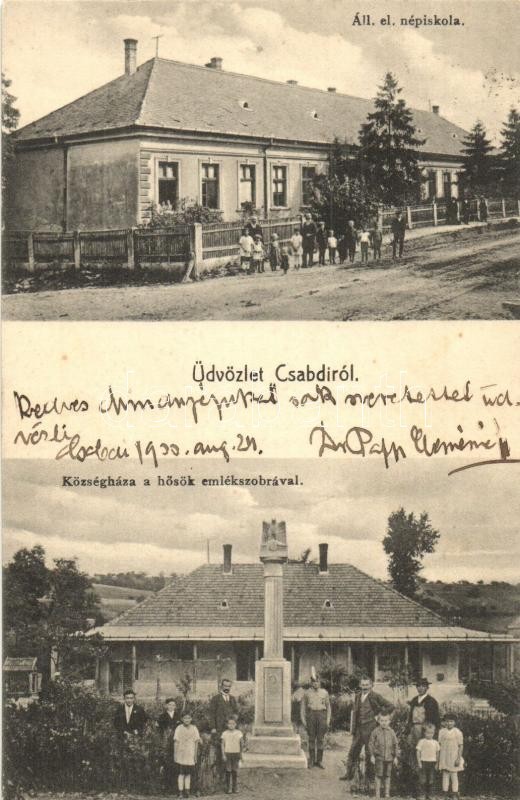 Áll. el. népiskola.
Üdvözlet Csabdiról.
Kedves sok szeretettel üd-
vözli
1933. aug. 24. Dr Papp
Községháza a hősök emlékszobrával.